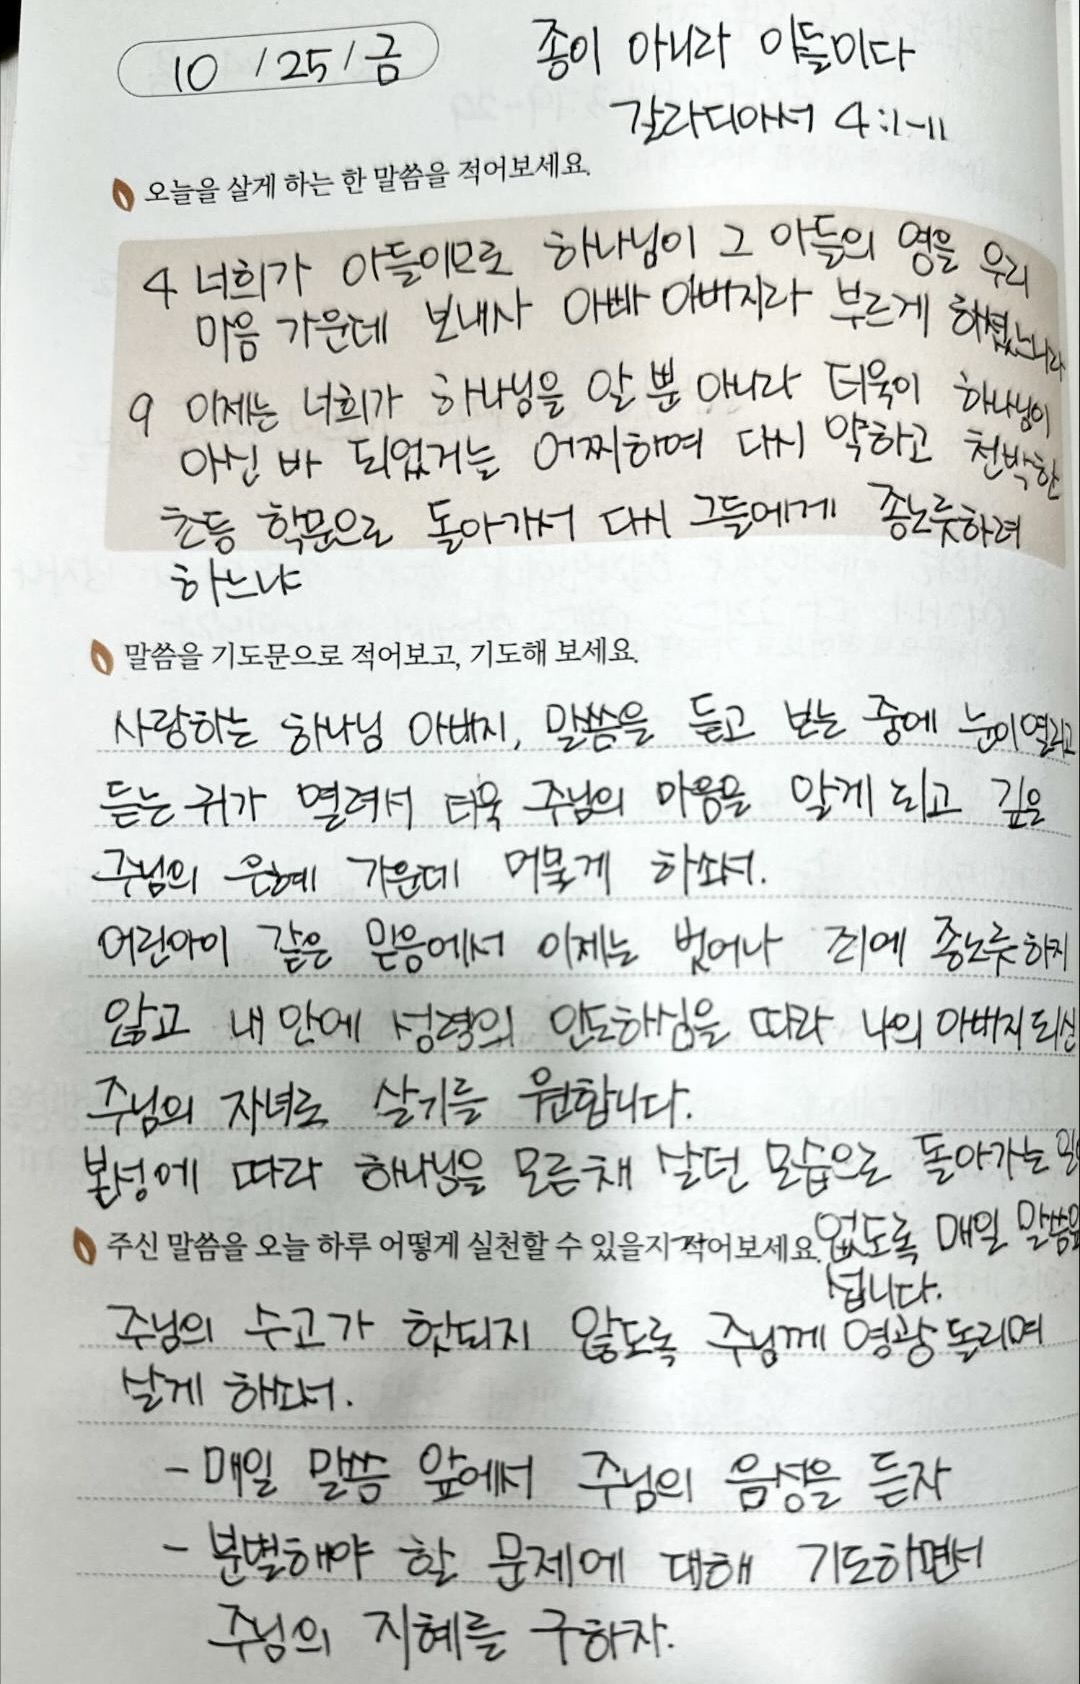 10 / 25 / 금
종이 아니라 아들이다
갈라디아서 4:1-11
오늘을 살게 하는 한 말씀을 적어보세요.
4 너희가 아들이므로 하나님이 그 아들의 영을 우리
마음 가운데 보내사 아빠 아버지라 부르게 하셨느니라
9 이제는 너희가 하나님을 알 뿐 아니라 더욱이 하나님이
아신 바 되었거늘 어찌하여 다시 약하고 천박한
초등 학문으로 돌아가서 다시 그들에게 종노릇하려
하느냐
말씀을 기도문으로 적어보고, 기도해 보세요.
사랑하는 하나님 아버지, 말씀을 듣고 보는 중에 눈이 열리고
듣는 귀가 열려서 더욱 주님의 마음을 알게 되고 깊은
주님의 은혜 가운데 머물게 하소서.
어린아이 같은 믿음에서 이제는 벗어나 죄에 종노릇 하지
않고 내 안에 성령의 인도하심을 따라 나의 아버지 되신
주님의 자녀로 살기를 원합니다.
본성에 따라 하나님을 모른채 살던 모습으로 돌아가는
없도록 매일 말씀을
주신 말씀을 오늘 하루 어떻게 실천할 수 있을지 적어보세요.
섭니다.
주님의 수고가 헛되지 않도록 주님께 영광 돌리며
살게 하소서.
- 매일 말씀 앞에서 주님의 음성을 듣자
- 분별해야 할 문제에 대해 기도하면서
주님의 지혜를 구하자.